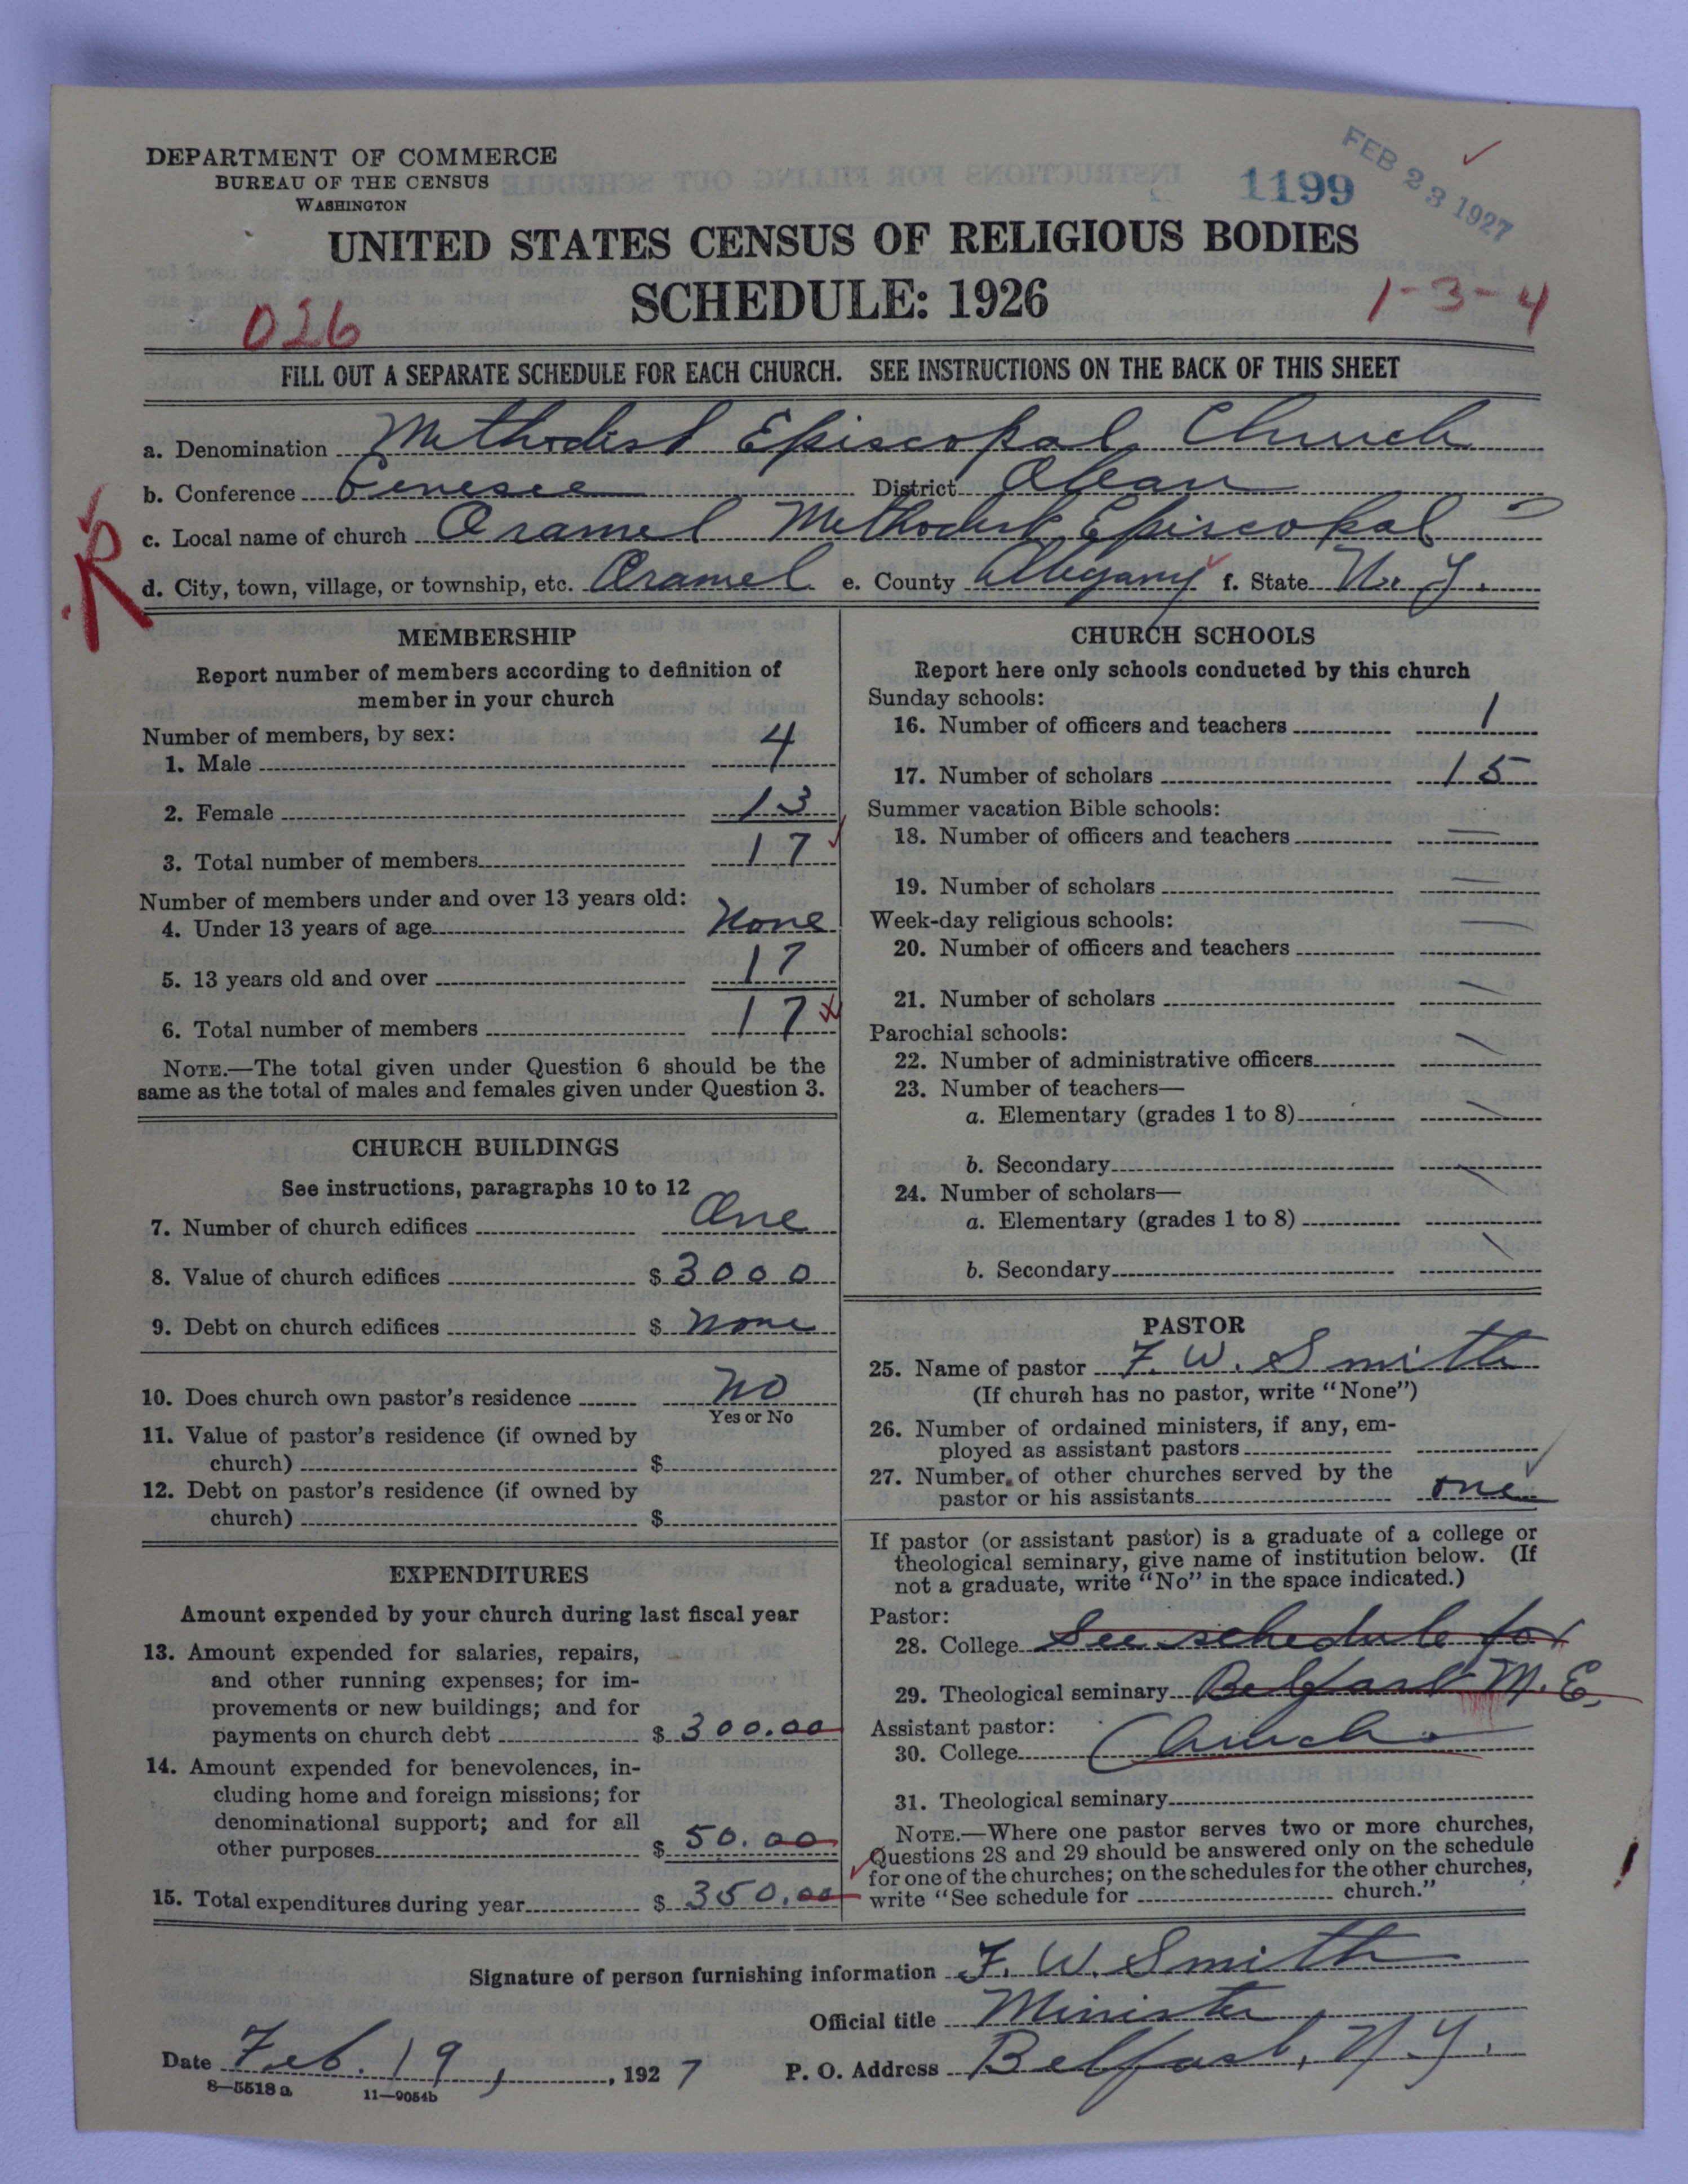 DEPARTMENT OF COMMERCE
BUREAU OF THE CENSUS
WASHINGTON
1199
FEB 23 1927
UNITED STATES CENSUS OF RELIGIOUS BODIES
SCHEDULE: 1926
026
1-3-4
FILL OUT A SEPARATE SCHEDULE FOR EACH CHURCH. SEE INSTRUCTIONS ON THE BACK OF THIS SHEET
a. Denomination Methodist Episcopal Church
b. Conference Genesee District Olean
c. Local name of church Oramel Methodist Episcopal
d. City, town, village, or township, etc. Oramel e. County Allegany f. State N. Y.
R
MEMBERSHIP
Report number of members according to definition of
member in your church
Number of members, by sex:
1. Male 4
2. Female 13
3. Total number of members 17
Number of members under and over 13 years old:
4. Under 13 years of age None
5. 13 years old and over 17
6. Total number of members 17
NOTE.—The total given under Question 6 should be the
same as the total of males and females given under Question 3.
CHURCH BUILDINGS
See instructions, paragraphs 10 to 12
7. Number of church edifices One
8. Value of church edifices $ 3000
9. Debt on church edifices $ None
10. Does church own pastor's residence No
Yes or No
11. Value of pastor's residence (if owned by
church) $
12. Debt on pastor's residence (if owned by
church) $
EXPENDITURES
Amount expended by your church during last fiscal year
13. Amount expended for salaries, repairs,
and other running expenses; for im-
provements or new buildings; and for
payments on church debt $ 300.00
14. Amount expended for benevolences, in-
cluding home and foreign missions; for
denominational support; and for all
other purposes $ 50.00
15. Total expenditures during year $ 350.00
CHURCH SCHOOLS
Report here only schools conducted by this church
Sunday schools:
16. Number of officers and teachers 1
17. Number of scholars 15
Summer vacation Bible schools:
18. Number of officers and teachers
19. Number of scholars
Week-day religious schools:
20. Number of officers and teachers
21. Number of scholars
Parochial schools:
22. Number of administrative officers
23. Number of teachers—
a. Elementary (grades 1 to 8)
b. Secondary
24. Number of scholars—
a. Elementary (grades 1 to 8)
b. Secondary
PASTOR
25. Name of pastor F. W. Smith
(If church has no pastor, write "None")
26. Number of ordained ministers, if any, em-
ployed as assistant pastors
27. Number of other churches served by the
pastor or his assistants one
If pastor (or assistant pastor) is a graduate of a college or
theological seminary, give name of institution below. (If
not a graduate, write "No" in the space indicated.)
Pastor:
28. College See schedule for
29. Theological seminary Belfast M. E.
Assistant pastor:
30. College Church
31. Theological seminary
NOTE.—Where one pastor serves two or more churches,
Questions 28 and 29 should be answered only on the schedule
for one of the churches; on the schedules for the other churches,
write "See schedule for church."
Signature of person furnishing information F. W. Smith
Official title Minister
Date Feb. 19, 1927 P. O. Address Belfast, N. Y.
8—5518a 11—9054b